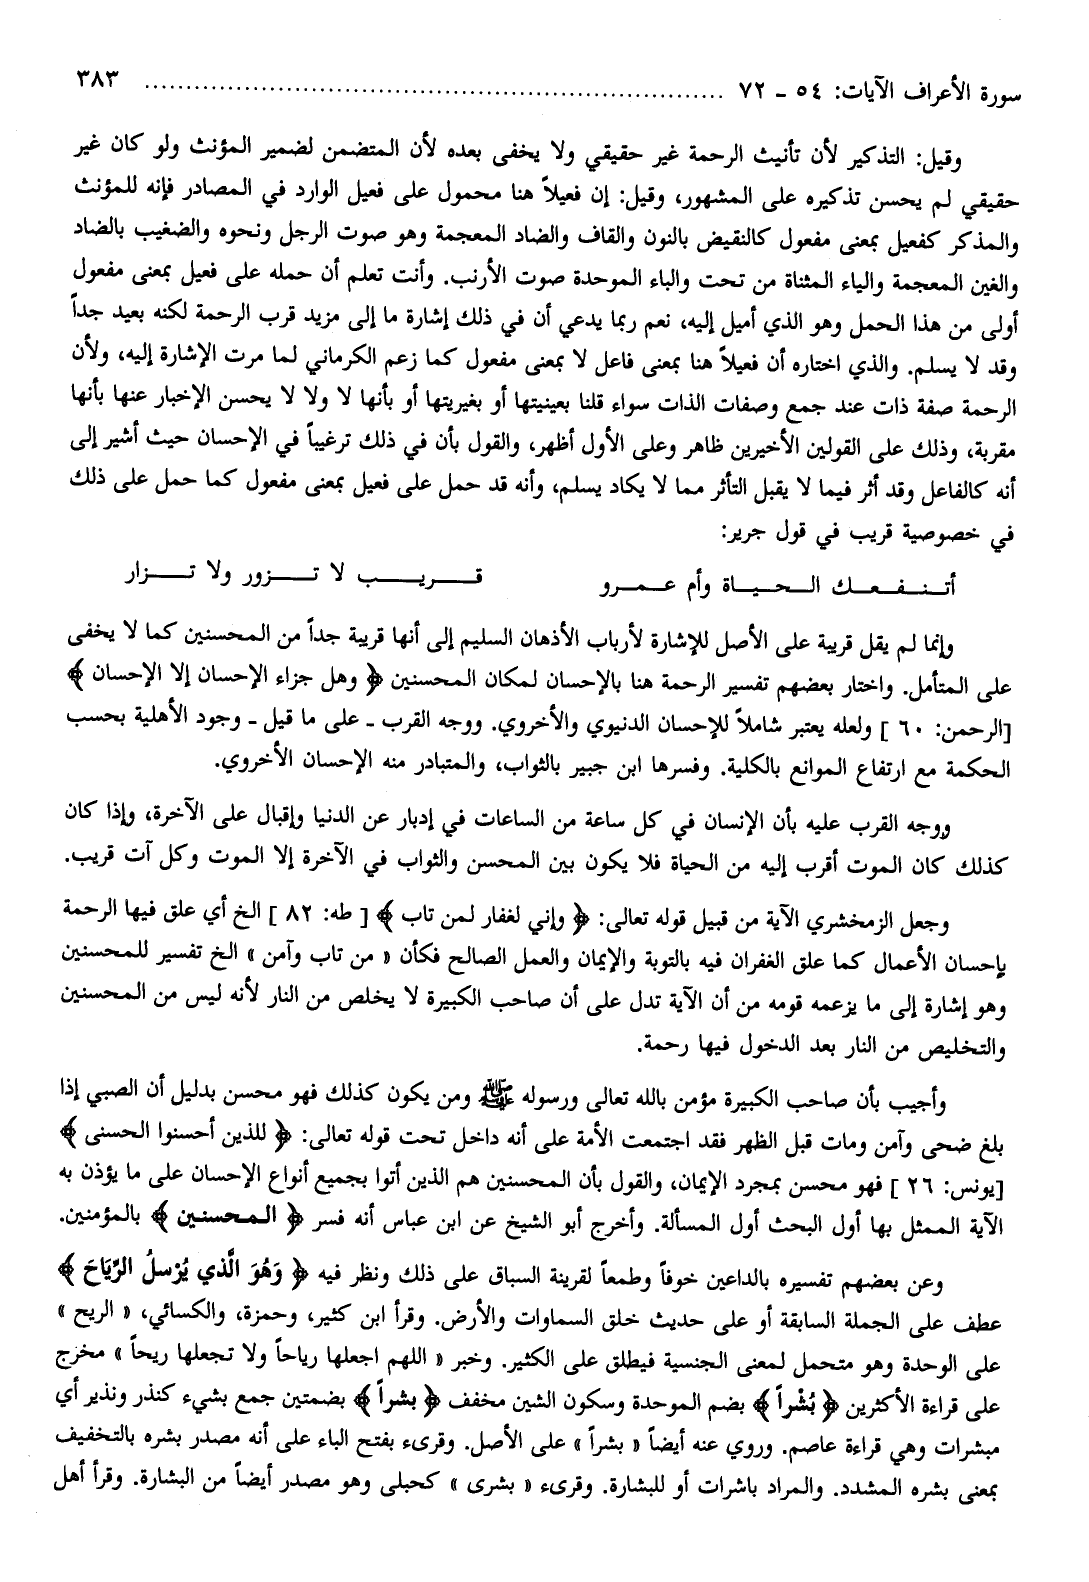 سورة الأعراف الآيات: ٥٤ ـ ٧٢ ........................................................................ ٣٨٣
وقيل: التذكير لأن تأنيث الرحمة غير حقيقي ولا يخفى بعده لأن المتضمن لضمير المؤنث ولو كان غير
حقيقي لم يحسن تذكيره على المشهور، وقيل: إن فعيلاً هنا محمول على فعيل الوارد في المصادر فإنه للمؤنث
والمذكر كفعيل بمعنى مفعول كالنقيض بالنون والقاف والضاد المعجمة وهو صوت الرجل ونحوه والضغيب بالضاد
والغين المعجمة والياء المثناة من تحت والباء الموحدة صوت الأرنب. وأنت تعلم أن حمله على فعيل بمعنى مفعول
أولى من هذا الحمل وهو الذي أميل إليه، نعم ربما يدعي أن في ذلك إشارة ما إلى مزيد قرب الرحمة لكنه بعيد جداً
وقد لا يسلم. والذي اختاره أن فعيلاً هنا بمعنى فاعل لا بمعنى مفعول كما زعم الكرماني لما مرت الإشارة إليه، ولأن
الرحمة صفة ذات عند جمع وصفات الذات سواء قلنا بعينيتها أو بغيريتها أو بأنها لا ولا لا يحسن الإخبار عنها بأنها
مقربة، وذلك على القولين الأخيرين ظاهر وعلى الأول أظهر، والقول بأن في ذلك ترغيباً في الإحسان حيث أشير إلى
أنه كالفاعل وقد أثر فيما لا يقبل التأثر مما لا يكاد يسلم، وأنه قد حمل على فعيل بمعنى مفعول كما حمل على ذلك
في خصوصية قريب في قول جرير:
أتنفعك الحياة وأم عمرو قريب لا تزور ولا تزار
وإنما لم يقل قريبة على الأصل للإشارة لأرباب الأذهان السليم إلى أنها قريبة جداً من المحسنين كما لا يخفى
على المتأمل. واختار بعضهم تفسير الرحمة هنا بالإحسان لمكان المحسنين ﴿ وهل جزاء الإحسان إلا الإحسان ﴾
[الرحمن: ٦٠ ] ولعله يعتبر شاملاً للإحسان الدنيوي والأخروي. ووجه القرب ـ على ما قيل ـ وجود الأهلية بحسب
الحكمة مع ارتفاع الموانع بالكلية. وفسرها ابن جبير بالثواب، والمتبادر منه الإحسان الأخروي.
ووجه القرب عليه بأن الإنسان في كل ساعة من الساعات في إدبار عن الدنيا وإقبال على الآخرة، وإذا كان
كذلك كان الموت أقرب إليه من الحياة فلا يكون بين المحسن والثواب في الآخرة إلا الموت وكل آت قريب.
وجعل الزمخشري الآية من قبيل قوله تعالى: ﴿ وإني لغفار لمن تاب ﴾ [ طه: ٨٢ ] الخ أي علق فيها الرحمة
بإحسان الأعمال كما علق الغفران فيه بالتوبة والإيمان والعمل الصالح فكأن « من تاب وآمن » الخ تفسير للمحسنين
وهو إشارة إلى ما يزعمه قومه من أن الآية تدل على أن صاحب الكبيرة لا يخلص من النار لأنه ليس من المحسنين
والتخليص من النار بعد الدخول فيها رحمة.
وأجيب بأن صاحب الكبيرة مؤمن بالله تعالى ورسوله ﷺ ومن يكون كذلك فهو محسن بدليل أن الصبي إذا
بلغ ضحى وآمن ومات قبل الظهر فقد اجتمعت الأمة على أنه داخل تحت قوله تعالى: ﴿ للذين أحسنوا الحسنى ﴾
[يونس: ٢٦ ] فهو محسن بمجرد الإيمان، والقول بأن المحسنين هم الذين أتوا بجميع أنواع الإحسان على ما يؤذن به
الآية الممثل بها أول البحث أول المسألة. وأخرج أبو الشيخ عن ابن عباس أنه فسر ﴿ المحسنين ﴾ بالمؤمنين.
وعن بعضهم تفسيره بالداعين خوفاً وطمعاً لقرينة السباق على ذلك ونظر فيه ﴿ وَهُوَ الَّذي يُرْسلُ الرِّيَاحَ ﴾
عطف على الجملة السابقة أو على حديث خلق السماوات والأرض. وقرأ ابن كثير، وحمزة، والكسائي، « الريح »
على الوحدة وهو متحمل لمعنى الجنسية فيطلق على الكثير. وخبر « اللهم اجعلها رياحاً ولا تجعلها ريحاً » مخرج
على قراءة الأكثرين ﴿ بُشْراً ﴾ بضم الموحدة وسكون الشين مخفف ﴿ بشراً ﴾ بضمتين جمع بشيء كنذر ونذير أي
مبشرات وهي قراءة عاصم. وروي عنه أيضاً « بشراً » على الأصل. وقرىء بفتح الباء على أنه مصدر بشره بالتخفيف
بمعنى بشره المشدد. والمراد باشرات أو للبشارة. وقرىء « بشرى » كحبلى وهو مصدر أيضاً من البشارة. وقرأ أهل